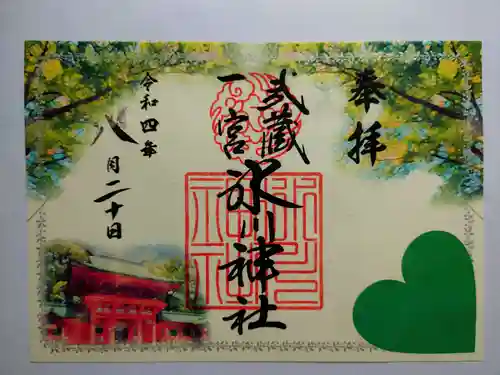 奉拝
武蔵
一宮
氷川神社
令和四年
八月二十日